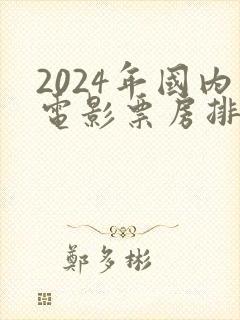 2024年国内
电影票房排
郑多彬